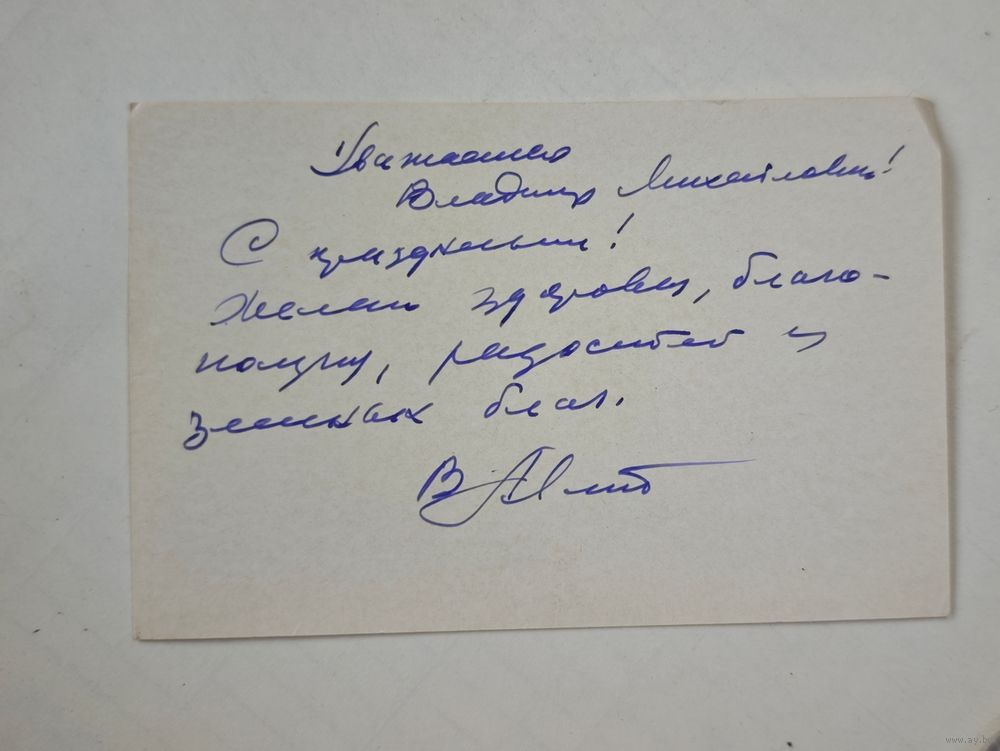 Уважаемый
Владимир Михайлович!
С праздником!
Желаю здоровья, благо-
получия, радостей и
земных благ.
В
www.ay.by